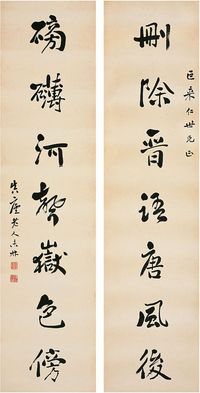 刪除晉語唐風後
巨來仁世兄正
磅礴河聲嶽色傍
老人